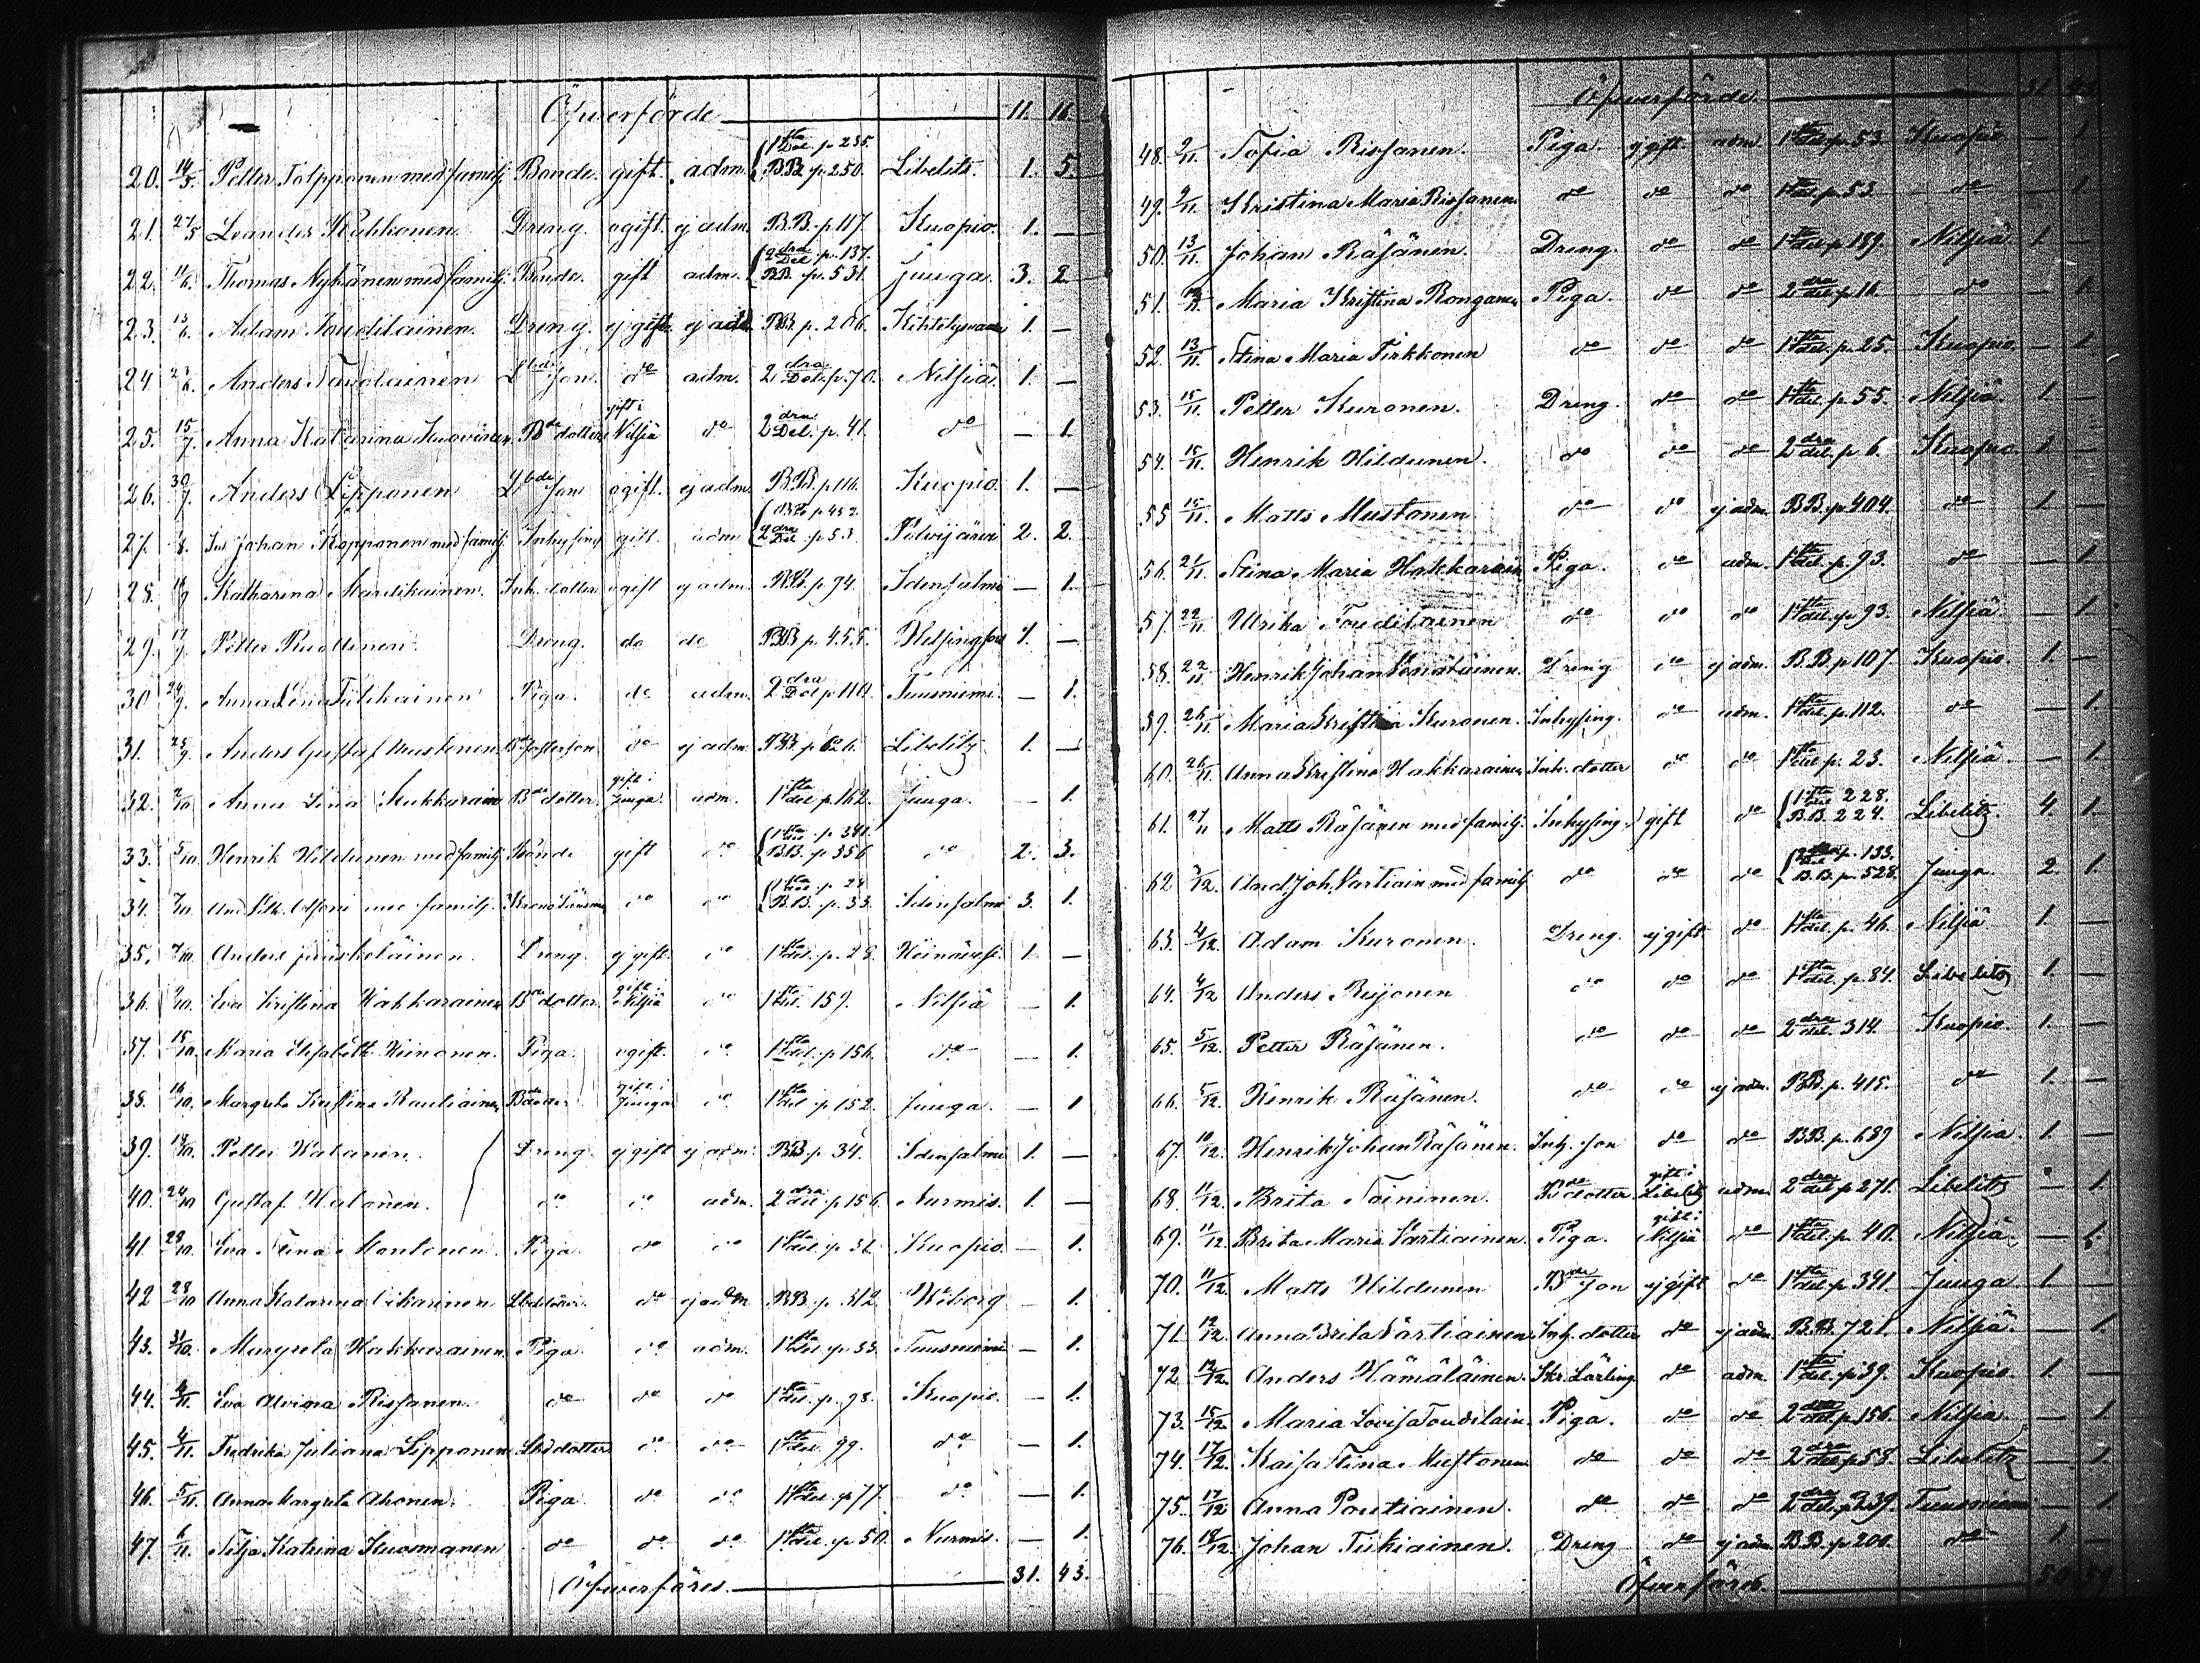 Öfverförde 11. 16.
20. 14/5 Petter Tolpponen med familj Bonde gift adm. 1sta Del. p 235. BB p. 250. Libelits. 1. 5.
21. 27/5 Leander Kukkonen Dreng. ogift. ej adm. BB. p. 117. Kuopio. 1. —
22. 11/6 Thomas Nykänen med familj. Bonde. gift adm. 2dra Del p. 137. BB. p. 531. Juuga. 3. 2.
23. 15/6 Adam Toudilainen. Dreng. ej gift ej adm BB p. 206. Kihtelysvaara 1. —
24. 27/6 Anders Tavolainen Son do adm. 2dra Del. p. 70. Nilsiä. 1. —
25. 15/7 Anna Katarina Kuovinen Bde dotter gift i Nilsiä do 2dra Del. p. 41. do — 1.
26. 30/7 Anders Lipponen Son ogift. ej adm. BB. p. 116. Kuopio. 1. —
27. Johan Kopponen med familj Inhysing gift. adm BB p 452. 2dra Del p. 53. Polvijärvi 2. 2.
28. Katharina Mardikainen. Inh. dotter ogift ej adm. BB. p 74. Idensalmi — 1.
29. 17/9 Petter Ruottinen. Dreng. do do BB p. 455. Helsingfors 1. —
30 24/9. Anna Lena Tulikainen Piga. do adm. 2dra Del p 110. Tuusniemi. — 1.
31. 25/9 Anders Gustaf Mustonen do ej adm BB p 626. Libelitz 1. —
32. 2/10 Anna Lena Kukkarain Bde dotter gift i Juuga. adm. 1sta del p. 162. Juuga. — 1.
33. 5/10. Henrik Hildunen med familj Bonde gift do 1sta del p 341. BB. p 356 do 2. 3.
34. 7/10. med familj. do do 1sta del p. 24 BB. p. 33. Idensalmi 3. 1.
35. 7/10. Anders Jääskeläinen. Dreng ej gift. do 1sta del. p. 28. Heinävesi 1. —
36. 9/10. Eva Kristina Hakkarainen Bde dotter. gift i Nilsiä do 1sta del. 157. Nilsiä — 1.
37. 15/10. Maria Elisabeth Heinonen. Piga. ogift. do 1sta del. p 156. do — 1.
38. 16/10. Margreta Kristina Rautiainen gift i Juuga do 1sta del p 152. Juuga. — 1
39. 18/10. Petter Halonen. Dreng. ej gift ej adm. BB. p. 34. Idensalmi 1. —
40. 24/10 Gustaf Halonen. do do adm. 2dra del p 156. Nurmis. 1. —
41. 28/10. Eva Stina Mantonen. Piga do do 1sta del. p 31. Kuopio. — 1.
42 28/10 Anna Katarina do ej adm BB. p. 312. Wiborg — 1.
43. 31/10. Margreta Hakkarainen. Piga. do adm. 1sta del. p. 33. Tuusniemi — 1.
44. 4/11. Eva Alvina Rissanen. do do do 1sta del. p. 98. Kuopio. — 1.
45. 4/11. Fredrika Juliana Lipponen dotter do do 1sta del. 99. do — 1.
46. 5/11. Anna Margreta Ahonen. Piga do do 1sta del. p 77. do — 1.
47. 6/11. Silja Katrina Kuosmanen do do do 1sta del. p 50. Nurmis. — 1.
Öfverföres. 31. 43.
Öfverförde. 31.
48. 9/11. Sofia Rissanen. Piga. ej gift. adm. 1sta del. p. 53. Kuopio. — 1.
49. 9/11. Kristina Maria Rissanen. do do do 1sta del p. 53. do — 1.
50. 13/11. Johan Räsänen. Dreng. do do 1sta del. p 189. Nilsiä 1. —
51. Maria Kristina Ronganen Piga. do do 2dra del. p 16. do — 1.
52. 13/11. Stina Maria Tirkkonen do do do 1sta del. p. 25. Kuopio. — 1
53. 15/11. Petter Kuronen. Dreng. do do 1sta del. p. 55. Nilsiä 1. —
54. 15/11. Henrik Hildunen. do do do 2dra del. p 6. Kuopio. 1. —
55 15/11. Matts Mustonen do do ej adm. BB. p 404. do 1. —
56. 21/11. Stina Maria Hakkarain Piga. do adm. 1sta del. p. 93. do — 1.
57. 22/11. Ulrika Toudilainen do do do 1sta del. p 93. Nilsiä. — 1.
58. 22/11 Henrik Johan Dreng do ej adm. B.B. p 107. Kuopio. 1. —
59. 26/11 Maria Kristina Kuronen. Inhysing. do adm. 1sta del. p. 112. do — 1.
60. 26/11. Anna Kristina Hakkarainen Inh. dotter do do 1sta del p. 23. Nilsiä. — 1.
61. 27/11 Matts Räsänen med familj. Inhysing. gift do 1sta del 228. B.B. 224. Libelitz. 4. 1.
62 3/12. And. Joh. Vartiain med familj do do do 2dra del p. 133. B.B. p. 528. Juuga. 2. 1.
63. 4/12. Adam Kuronen. Dreng. ej gift do 1sta del. p. 46. Nilsiä 1. —
64. 4/12 Anders Reijonen do do do 1sta del. p. 84. Libelitz 1. —
65. 5/12. Petter Räsänen. do do do 2dra del. 314. Kuopio. 1. —
66. 5/12. Henrik Räsänen. do do ej adm. BB. p. 415. do 1. —
67. 10/12. Henrik Johan Räsänen. Inh. son do do BB. p. 689 Nilsiä. 1. —
68. 11/12. Brita Toininen. Bde dotter gift i Libelitz adm. 2dra del p 271. Libelitz — 1.
69. 11/12. Brita Maria Vartiainen. Piga. gift i Nilsiä do 1sta del. p. 40. Nilsiä. — 1.
70. 11/12. Matts Hildunen Bde son ej gift do 1sta del. p 341. Juuga. 1. —
71. 12/12. Anna Brita Vartiainen Inh. dotter do ej adm. B.B. 721. Nilsiä. — 1.
72 12/12. Anders Hämäläinen. Skr. Lärling do adm. 1sta del. p 39. Kuopio. 1. —
73. 15/12. Maria Lovisa Toudilain. Piga. do do 2dra del p 156. Nilsiä. — 1
74. 17/12. Kaisa Stina Mustonen do do do 2dra del p 58. Libelitz — 1.
75. 17/12 Anna Poutiainen. do do do 2dra del. p 239. Tuusniemi — 1
76. 18/12. Johan Tukiainen. Dreng do ej adm. BB. p 200. do 1. —
Öfverföres.